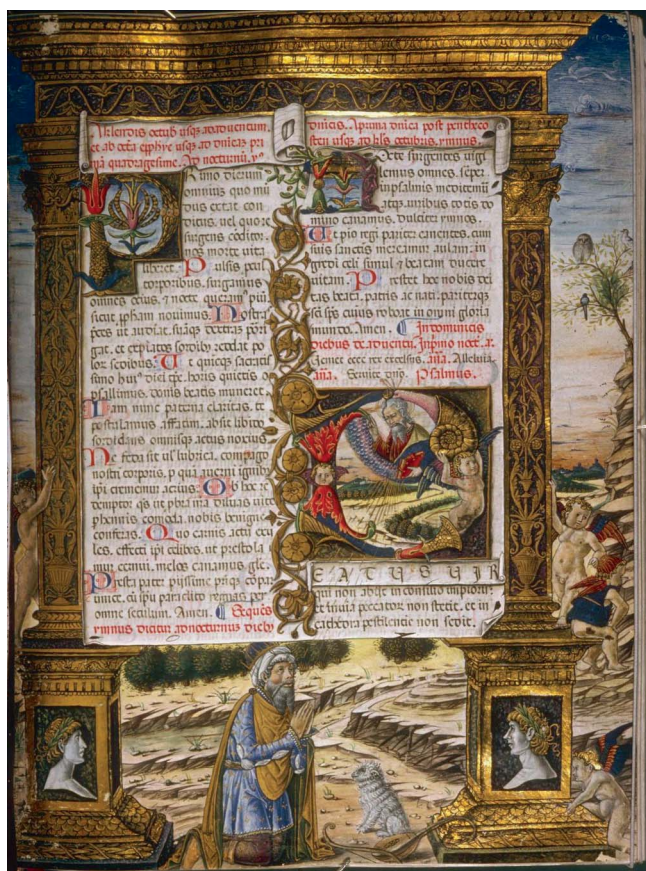 klendis octub usq3 ad aduentum.
et ab octa epyhye usq3 ad dnicaz pri
ma quadragesime. Ad nocturnu. y
Primo dierum
omnium quo mu
dus extat con
ditus, uel quo re
surgens coditor.
nos morte uicta
liberet. Pulsis
torporibus, surgamus
omnes ocius, et nocte
sicut ppham nouimus. Nostra
pces ut audiat, suaq3 dextras pori
gat, et expiatos sordib3 reddat po
lor sedibus. Ut quiq3 sacratis
simo hui9 diei tpe, horis quietis
psallimus, donis beatis muneret
Iam nunc paterna claritas, te
postulamus affatim, absit libido
sordidans omnisq3 actus noxius.
Ne feda sit ul lubrica, compago
nostri corporis, p qua auerni ignib3
ipi crememur acrius. Ob hoc re
demptor qs ut nra diluas uite
phennis comoda, nobis benigne
conferas. Quo carnis actu exu
les, effecti ipi celibes, ut prestola
mur cernui, melos canamus glie.
Presta pater piissime priq3 copar
unice, cu spu paraclito regnas per
omne seculum. Amen. Seques
ymnus dicitur ad nocturnus dieb3
dnicis. A prima dnica post pentheco
sten usq3 ad kls octubris. ymnus.
Nocte surgentes uigi
lemus omnes, seper
in psalmis meditemur
atq3 uiribus totis do
mino canamus, dulciter ymnos.
Ut pio regi pariter canentes, cum
suis sanctis mereamur aulam, in
gredi celi simul et beatam ducere
uitam. Prestet hoc nobis dei
tas beata, patris ac nati, pariterq3
sci sps cuius reboat in omni gloria
mundo. Amen. In dominicis
diebus de aduentu. In primo noct. a.
Veniet ecce rex excelsus. ana. Alleluia.
ana. Seruite dno. Psalmus.
BEATUS UIR
qui non abijt in consilio impioru
et in uia peccatoru non stetit, et in
cathedra pestilentie non sedit.